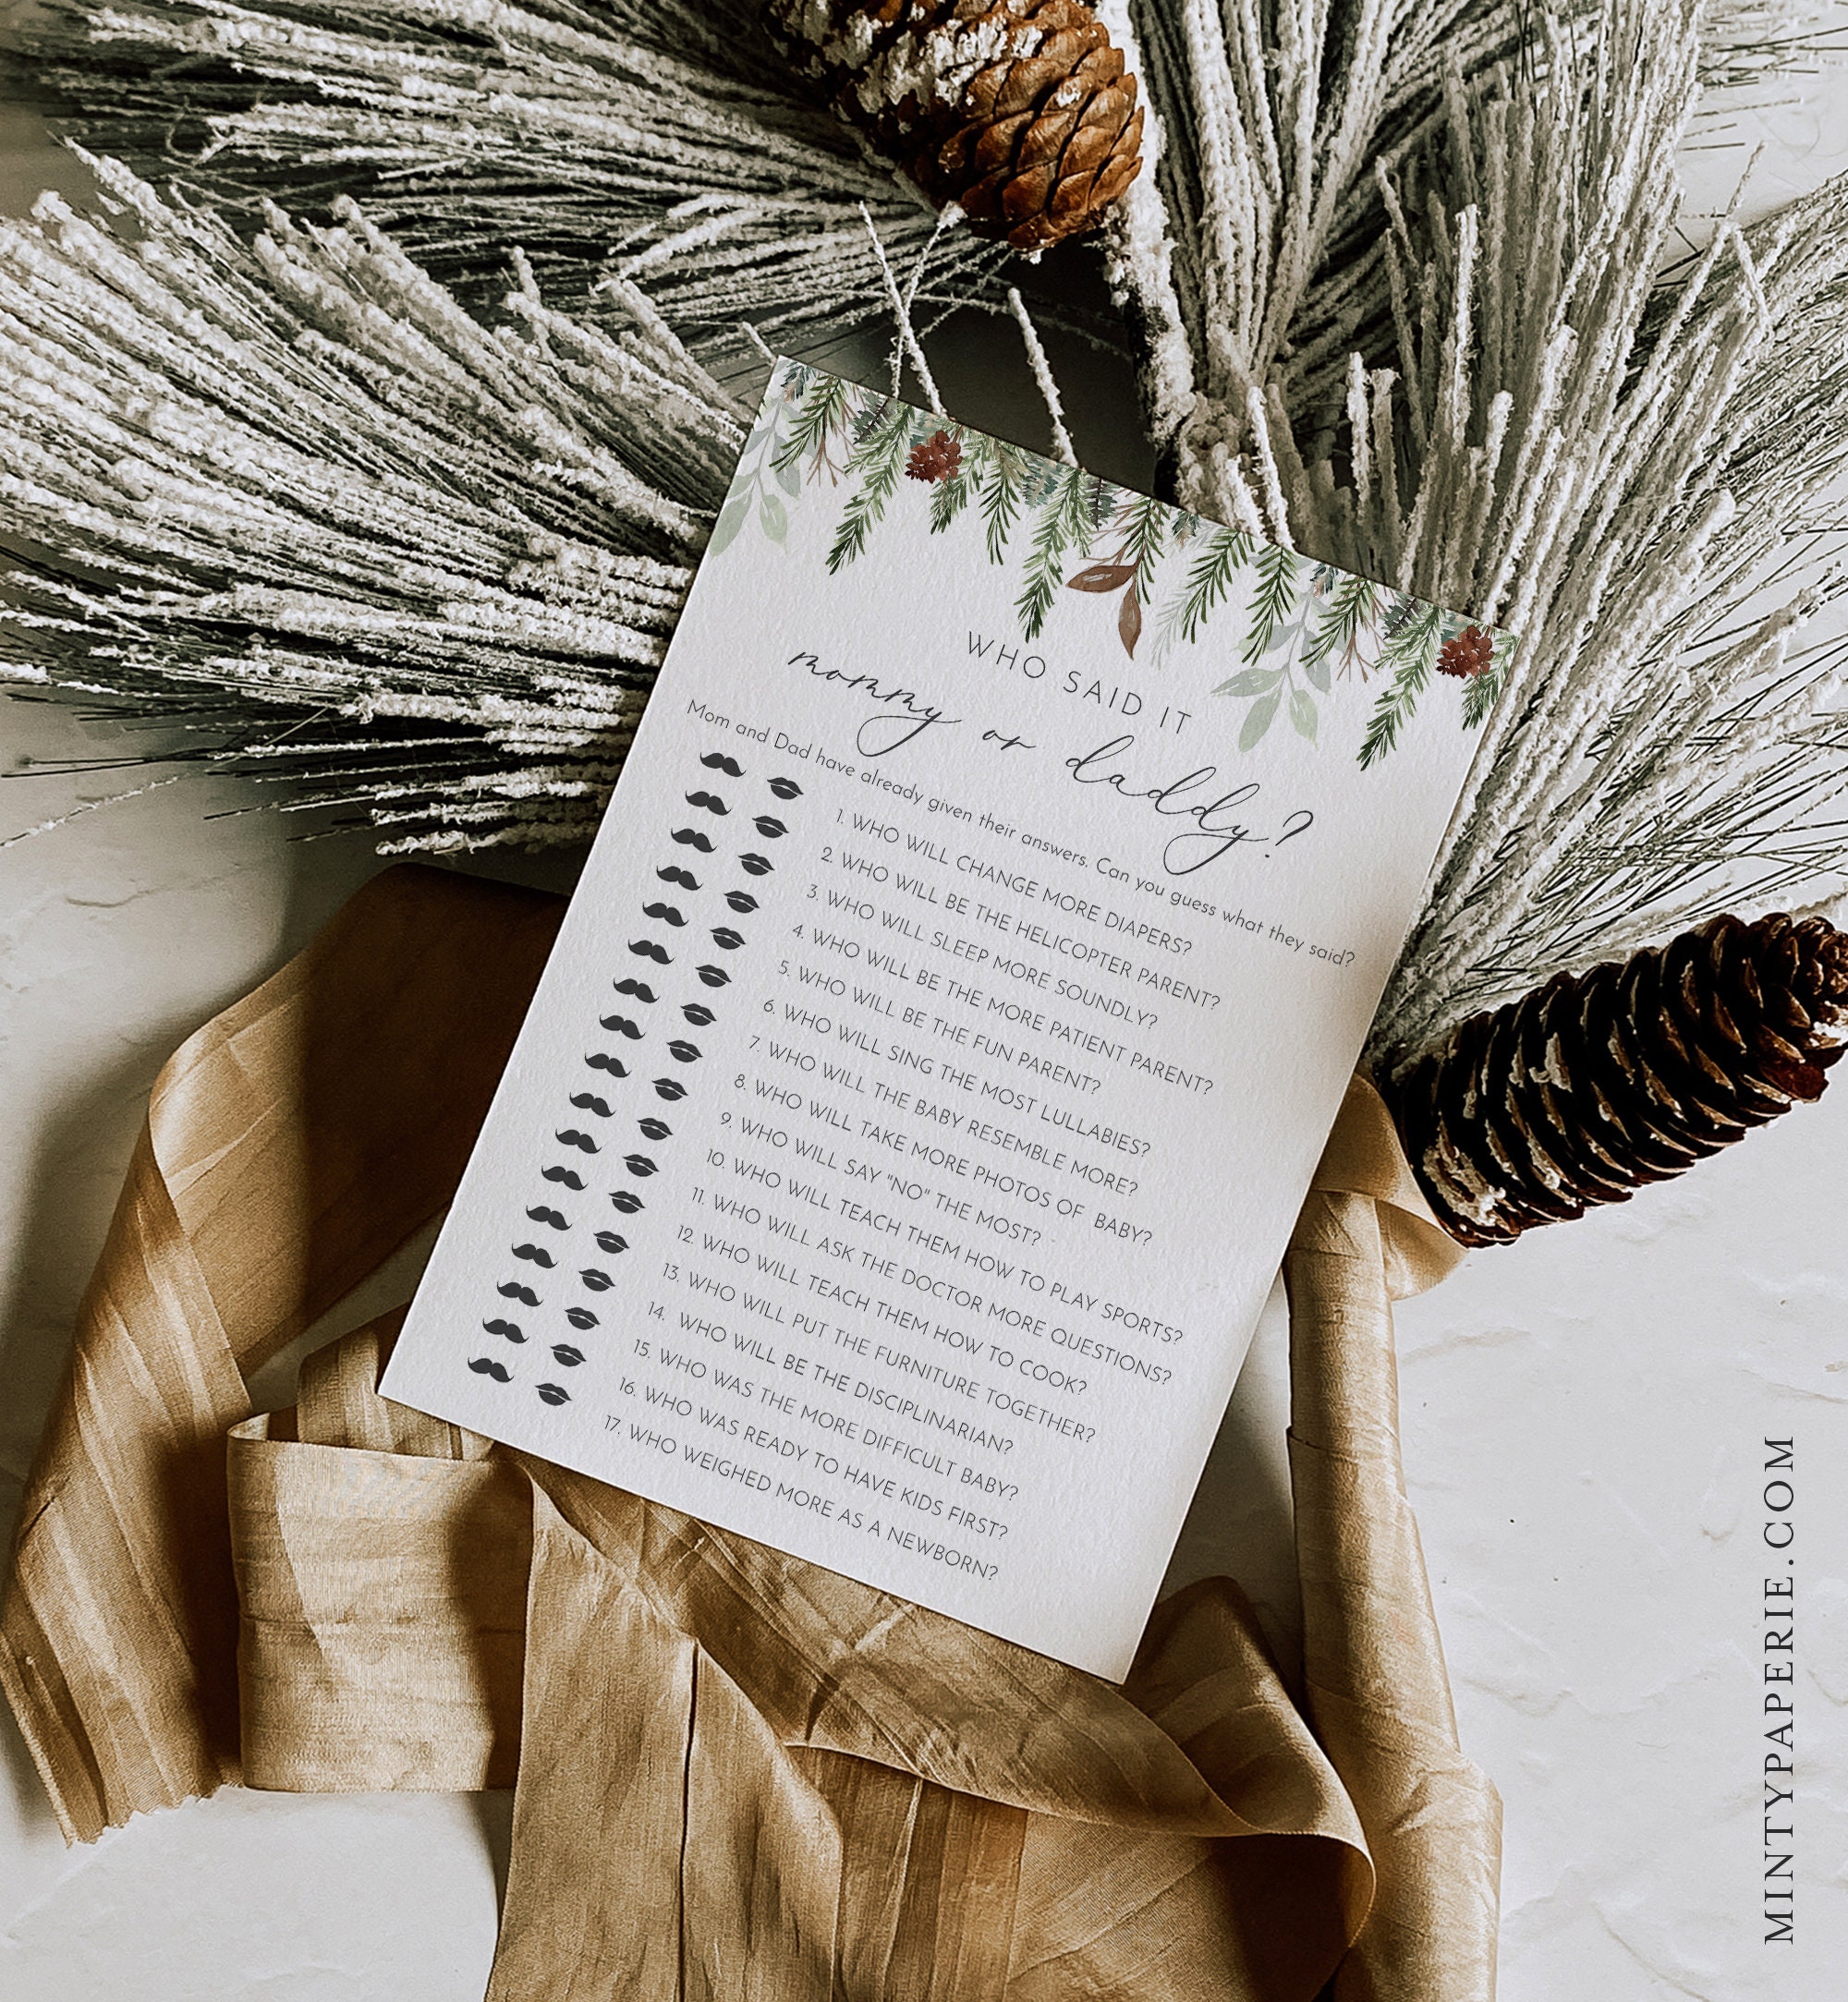 WHO SAID IT
mommy or daddy?
Mom and Dad have already given their answers. Can you guess what they said?
1. WHO WILL CHANGE MORE DIAPERS?
2. WHO WILL BE THE HELICOPTER PARENT?
3. WHO WILL SLEEP MORE SOUNDLY?
4. WHO WILL BE THE MORE PATIENT PARENT?
5. WHO WILL BE THE FUN PARENT?
6. WHO WILL SING THE MOST LULLABIES?
7. WHO WILL THE BABY RESEMBLE MORE?
8. WHO WILL TAKE MORE PHOTOS OF BABY?
9. WHO WILL SAY "NO" THE MOST?
10. WHO WILL TEACH THEM HOW TO PLAY SPORTS?
11. WHO WILL ASK THE DOCTOR MORE QUESTIONS?
12. WHO WILL TEACH THEM HOW TO COOK?
13. WHO WILL PUT THE FURNITURE TOGETHER?
14. WHO WILL BE THE DISCIPLINARIAN?
15. WHO WAS THE MORE DIFFICULT BABY?
16. WHO WAS READY TO HAVE KIDS FIRST?
17. WHO WEIGHED MORE AS A NEWBORN?
MINTYPAPERIE.COM